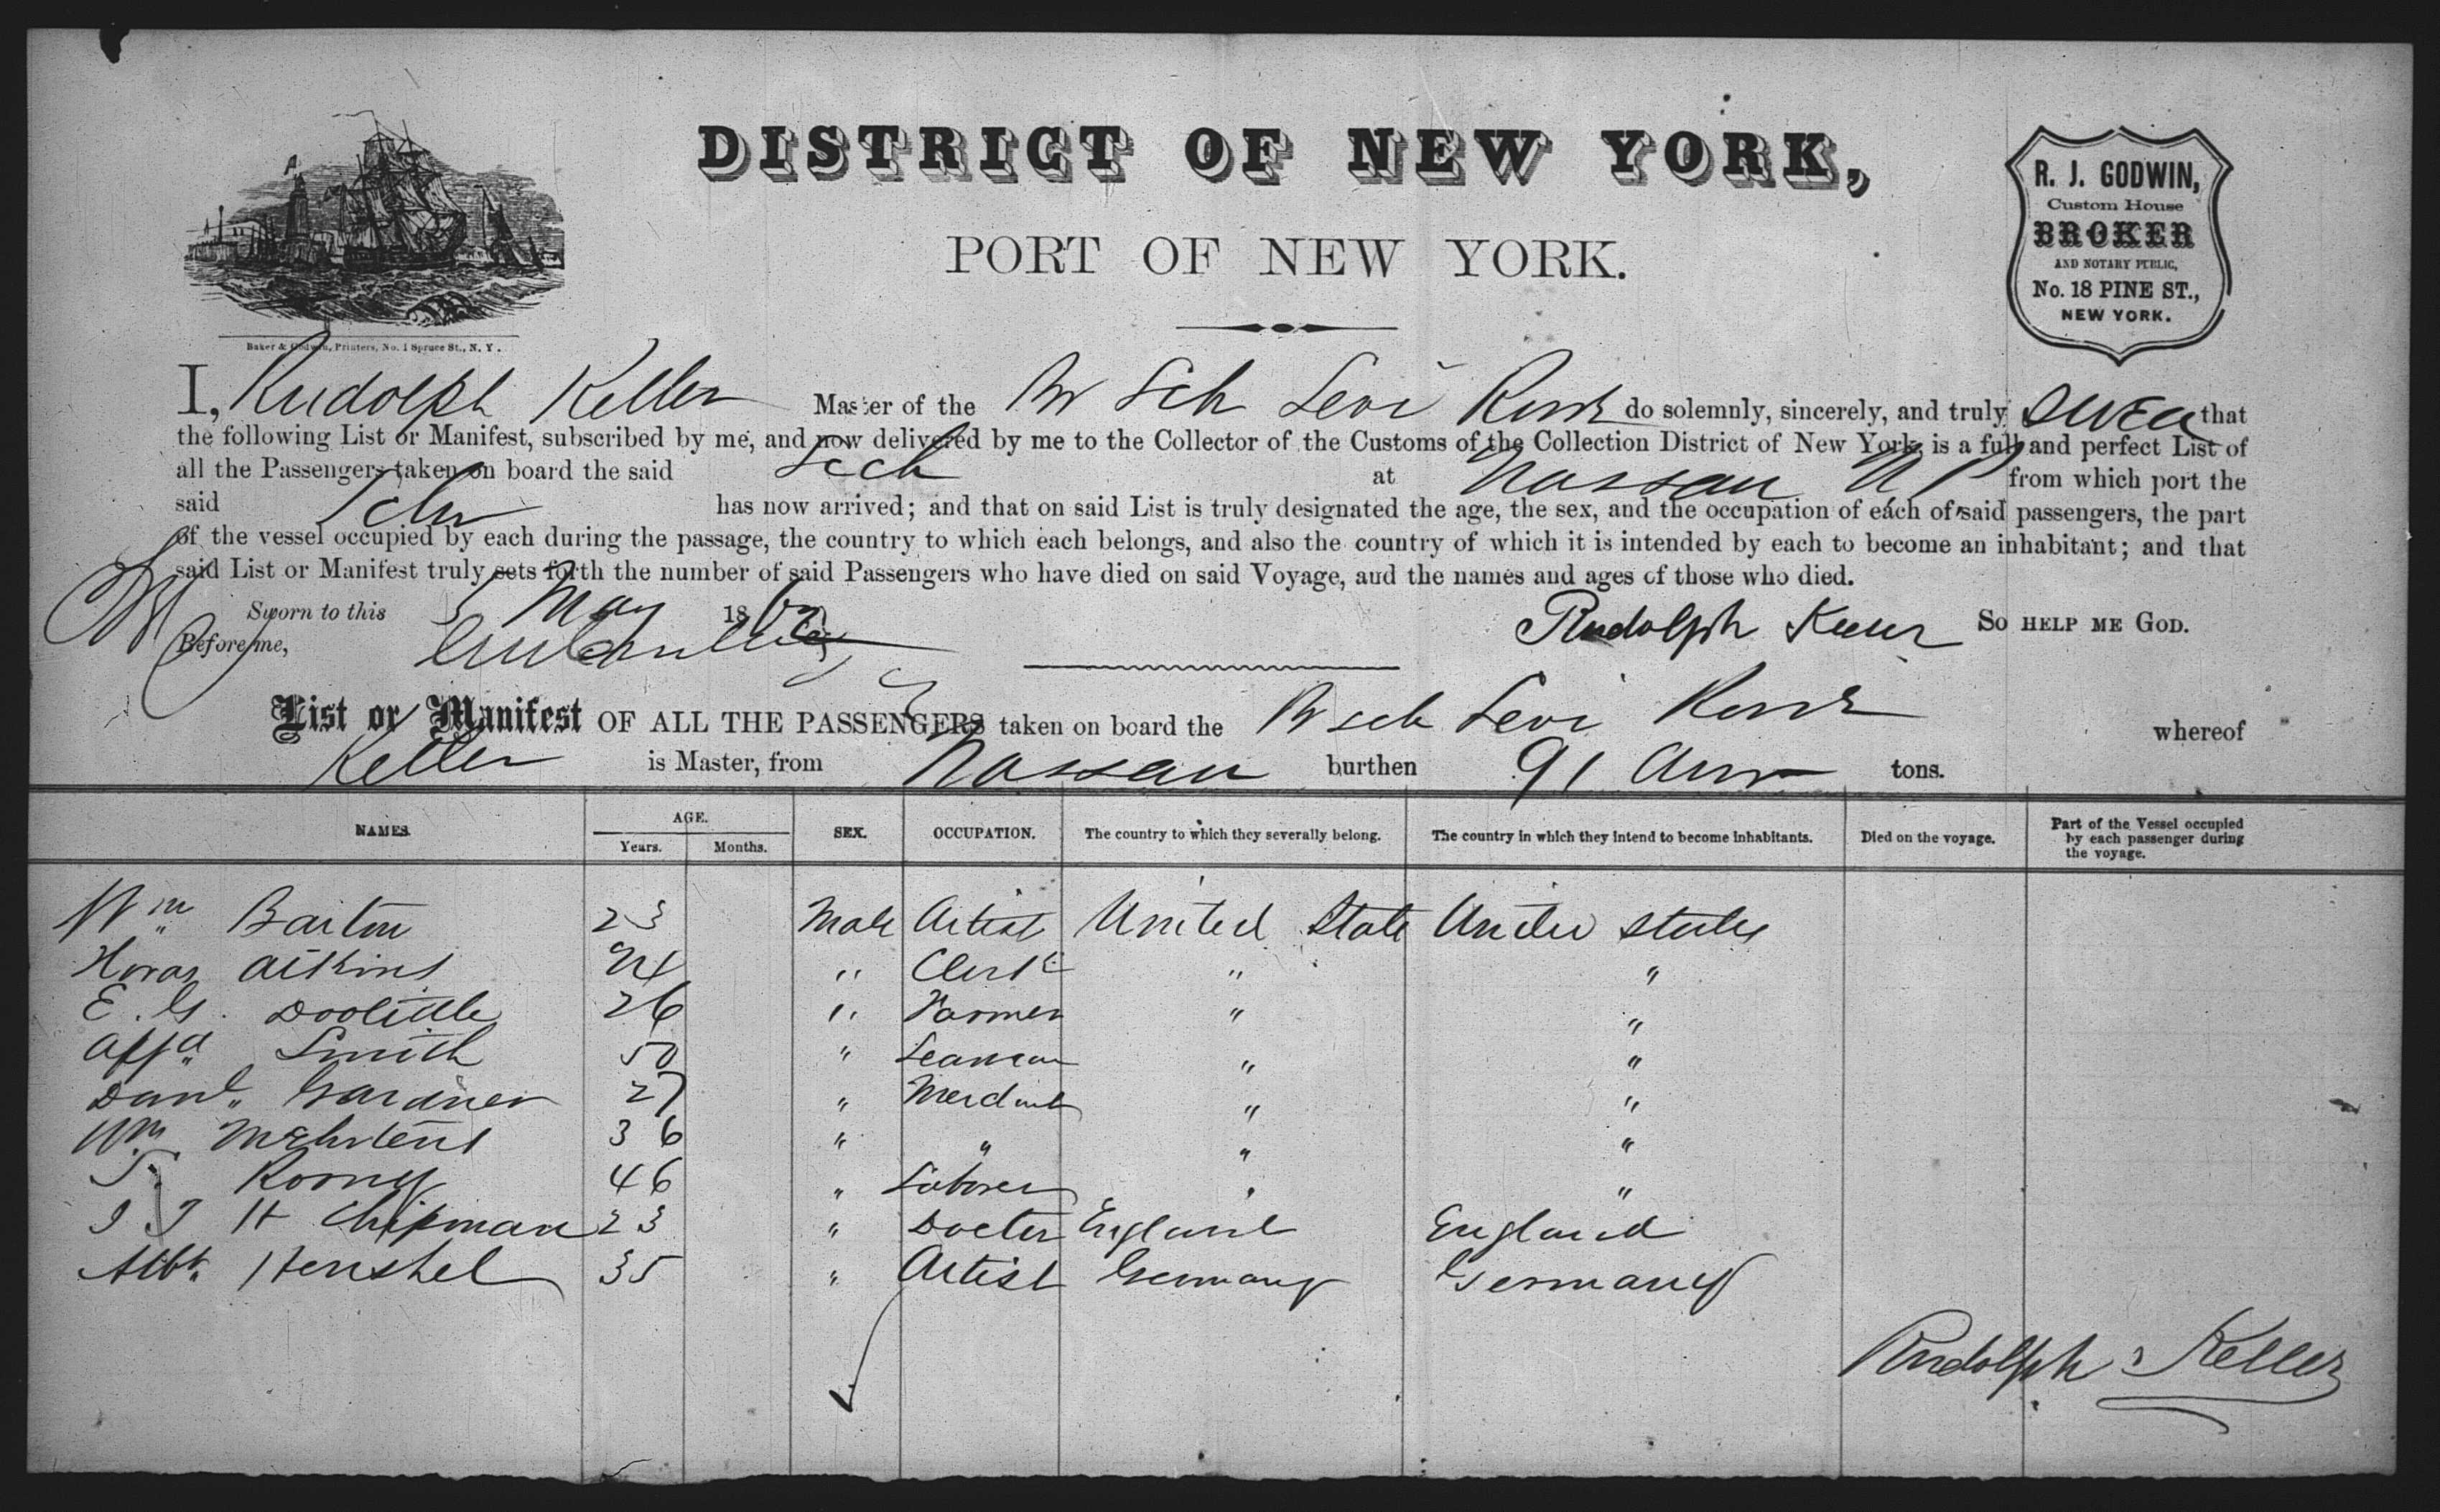 DISTRICT OF NEW YORK,
PORT OF NEW YORK.
R. J. GODWIN,
Custom House
BROKER
AND NOTARY PUBLIC,
No. 18 PINE ST.,
NEW YORK.
Baker & Godwin, Printers, No. 1 Spruce St., N. Y.
I, Rudolph Keller Master of the Br Sch Levi do solemnly, sincerely, and truly swear that
the following List or Manifest, subscribed by me, and now delivered by me to the Collector of the Customs of the Collection District of New York, is a full and perfect List of
all the Passengers taken on board the said Sch at Nassau N P from which port the
said Schr has now arrived; and that on said List is truly designated the age, the sex, and the occupation of each of said passengers, the part
of the vessel occupied by each during the passage, the country to which each belongs, and also the country of which it is intended by each to become an inhabitant; and that
said List or Manifest truly sets forth the number of said Passengers who have died on said Voyage, and the names and ages of those who died.
Sworn to this 5 May 18
Rudolph Keller So HELP ME GOD.
Before me,
List or Manifest OF ALL THE PASSENGERS taken on board the Br sch Levi whereof
Keller is Master, from Nassau burthen 91 tons.
NAMES. AGE. SEX. OCCUPATION. The country to which they severally belong. The country in which they intend to become inhabitants. Died on the voyage. Part of the Vessel occupied by each passenger during the voyage.
Years. Months.
Wm Barton 23 Male Artist United State United States
Horas Atkins 24 " Clerk " "
E. G. Doolittle 26 " Farmer " "
Smith 50 " Seaman " "
Danl Gardner 27 " " "
Wm Mehrtens 36 " " " "
T. Roony 46 " Laborer " "
J J H Chipman 23 " Docter England England
Albt Henshel 35 " Artist Germany Germany
Rudolph Keller